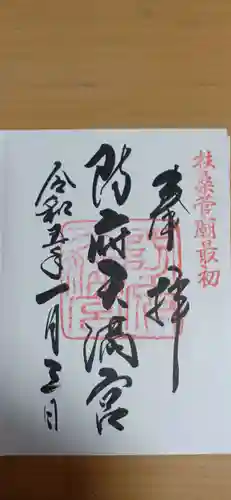 扶桑菅廟最初
奉拝
防府天満宮
令和五年一月三日